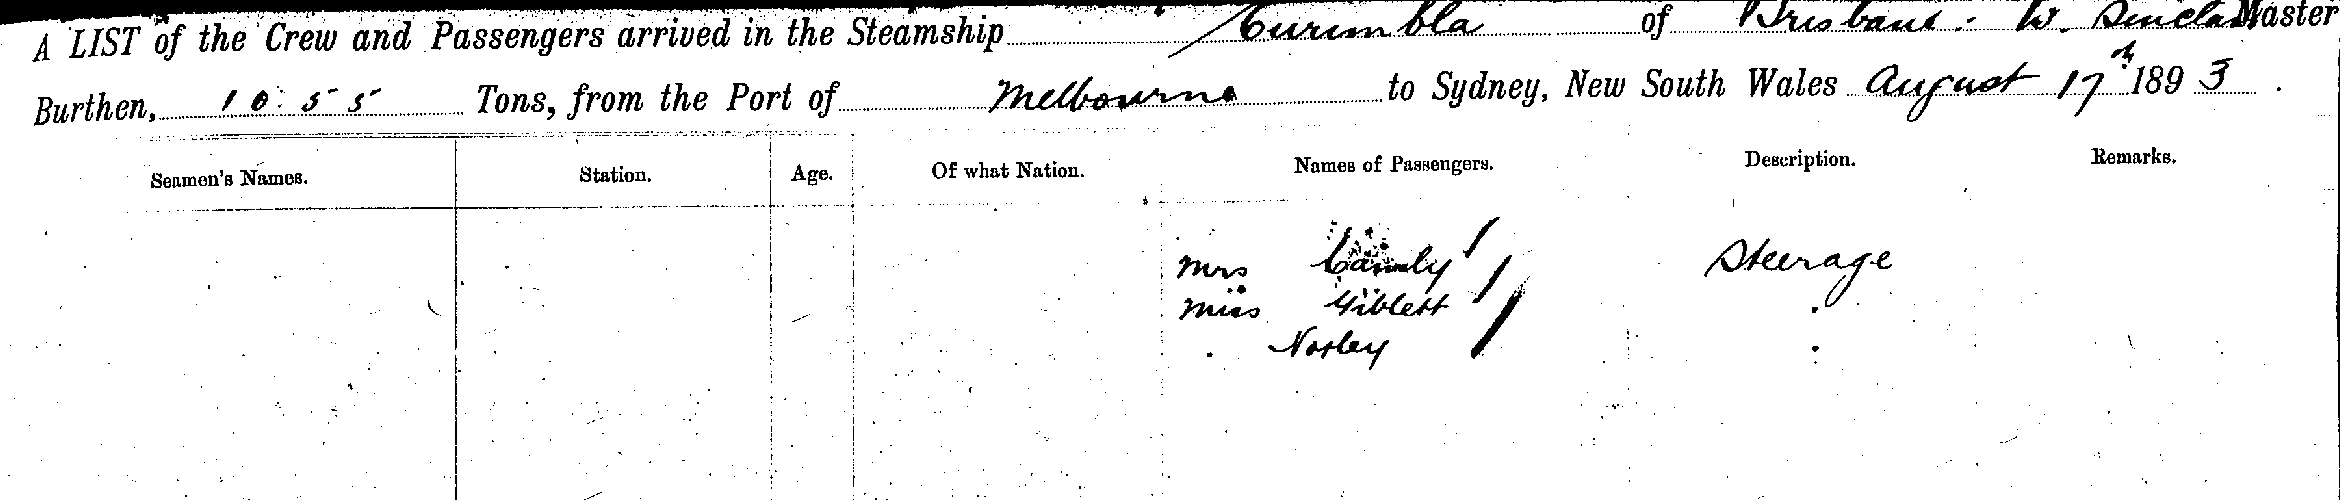 A LIST of the Crew and Passengers arrived in the Steamship Curumbla of Brisbane. W. Sinclair Master
Burthen, 1055 Tons, from the Port of Melbourne to Sydney, New South Wales August 17th 1893.
Seamen's Names. Station. Age. Of what Nation. Names of Passengers. Description. Remarks.
Mrs Steerage
Miss Giblett "
" Norley "